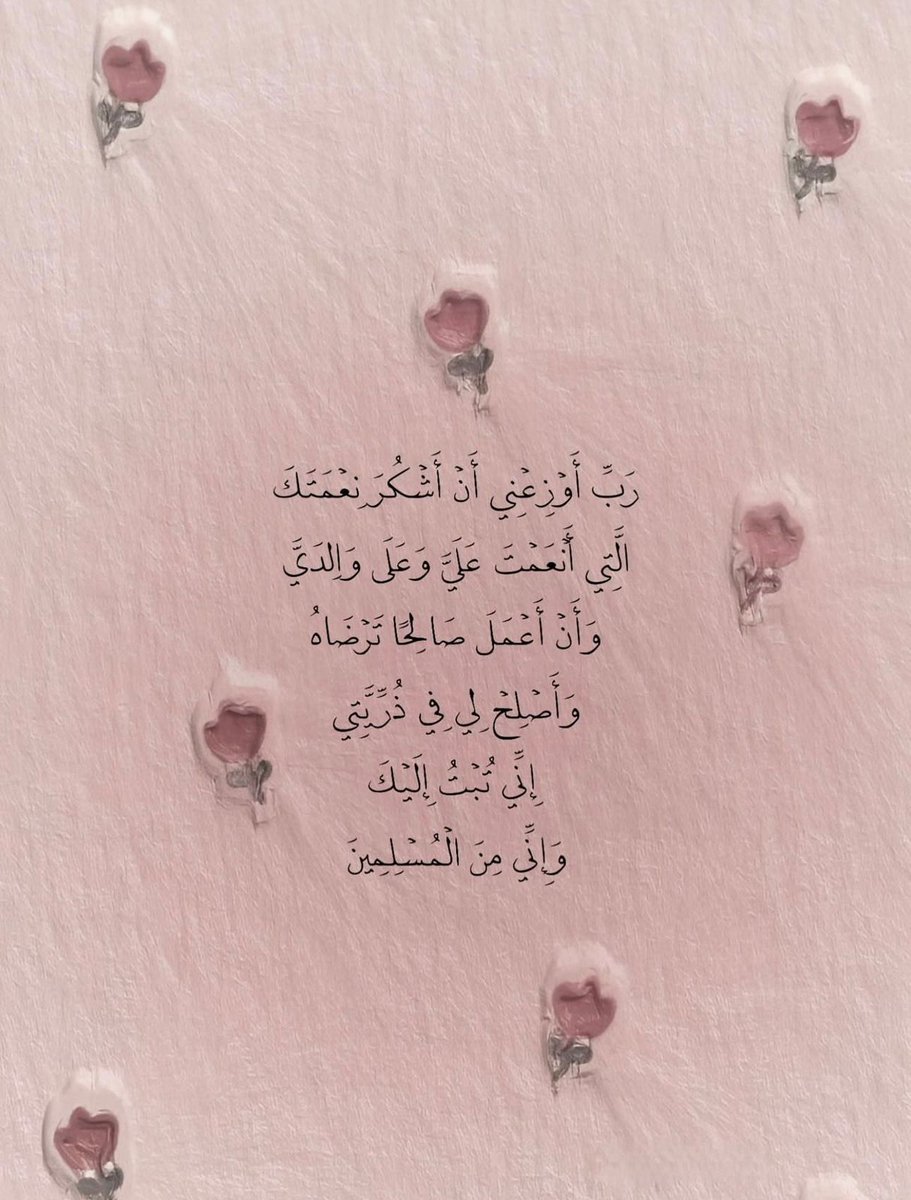 رَبِّ أَوْزِعْنِي أَنْ أَشْكُرَ نِعْمَتَكَ
الَّتِي أَنْعَمْتَ عَلَيَّ وَعَلَى وَالِدَيَّ
وَأَنْ أَعْمَلَ صَالِحًا تَرْضَاهُ
وَأَصْلِحْ لِي فِي ذُرِّيَّتِي
إِنِّي تُبْتُ إِلَيْكَ
وَإِنِّي مِنَ الْمُسْلِمِينَ